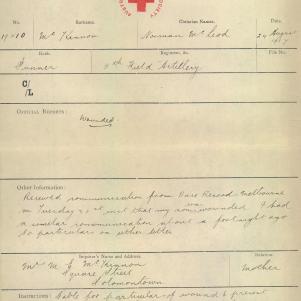 No.
Surname.
Christian Names.
Date.
SOCIETY
1910
McKinnon
Norman McLeod
24 August
1917
Rank.
Regiment, &c.
File No.
Gunner
Field Artillery
C/
/L
OFFICIAL REPORTS:
Wounded
Other Information:
Received communication from Base Record Melbourne
on Tuesday 21st inst that my son was wounded I had
a similar communication about a fortnight ago
no particulars on either letter
Inquirer's Name and Address.
Relation.
Mrs M McKinnon
Square Street
Solomontown
mother
INSTRUCTIONS: Cable for particulars of wound & present